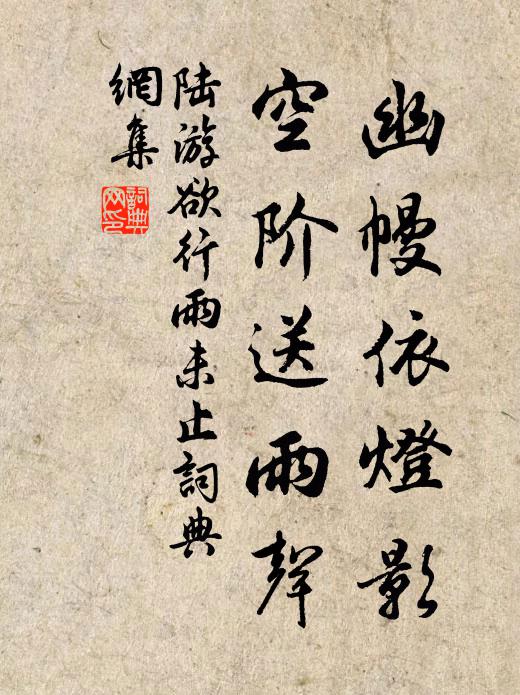 幽幔依燈影
空阶送雨聲
陆游欲行雨未止詞典
網集
詞典网印